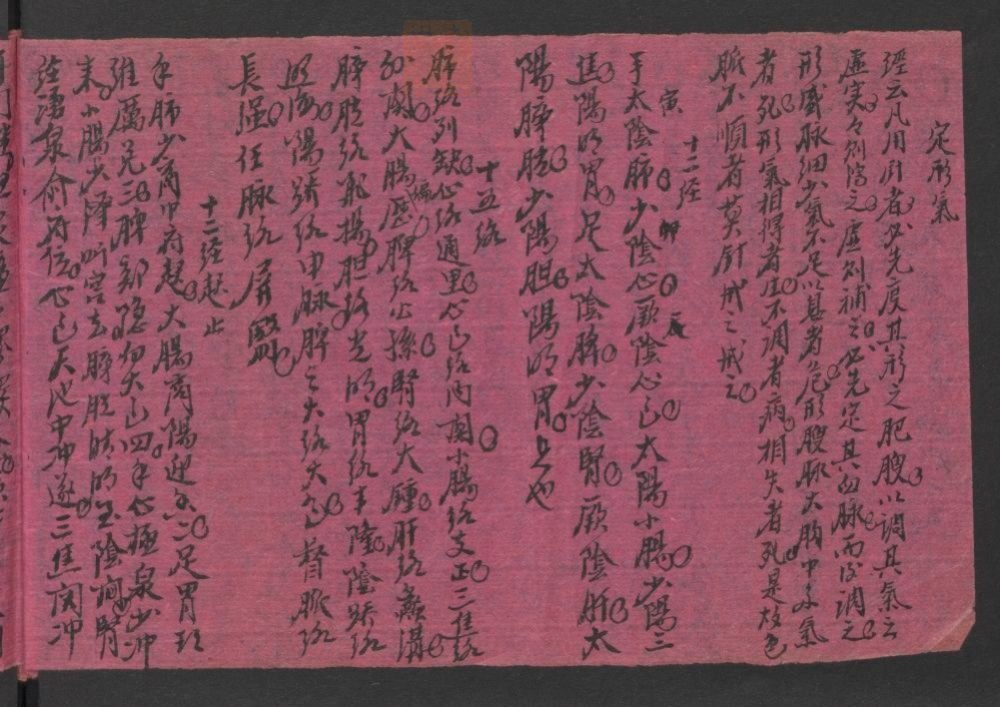 定形氣
經云凡用針者必先度其形之肥瘦以調其氣之
虛实々則瀉之虛則補之必先定其血脉而後調之
形盛脉細少氣不足以息者危形瘦脉大胸中多氣
者死形氣相得者生不調者病相失者死是故色
脈不順者莫針戒之戒之
十二經
寅 卯 辰
手太陰肺少陰心厥陰心包太陽小腸少陽三
焦陽明胃足太陰脾少陰腎厥陰肝太
陽膀胱少陽胆陽明胃是也
十五络
肺络列缺心络通里心包络内関小腸络支正三焦络
外関大腸偏歷脾络公孫腎络大鍾肝络蠡溝
膀胱络飛揚胆络光明胃络丰隆陰蹻络
照海陽蹻络申脉脾之大络大包督脈络
長强任脉络屏翳
十二經起止
手肺少商中府起大腸商陽迎香二足胃
厲兌三脾部隐白大包四手心極泉少冲
来小腸少泽听宫去膀胱睛明至陰间腎
經湧泉俞府位心包天池中冲遂三焦関冲